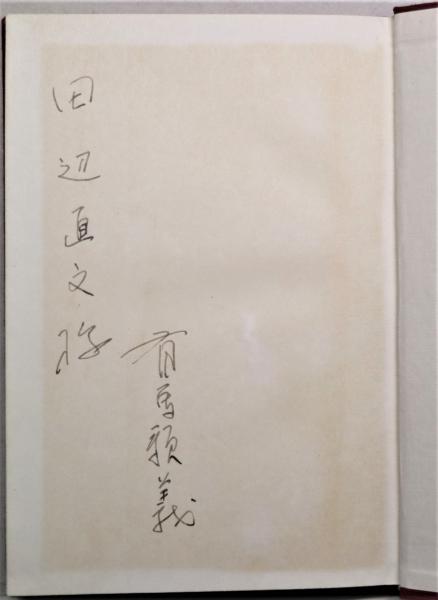 田辺直文様
有馬頼義